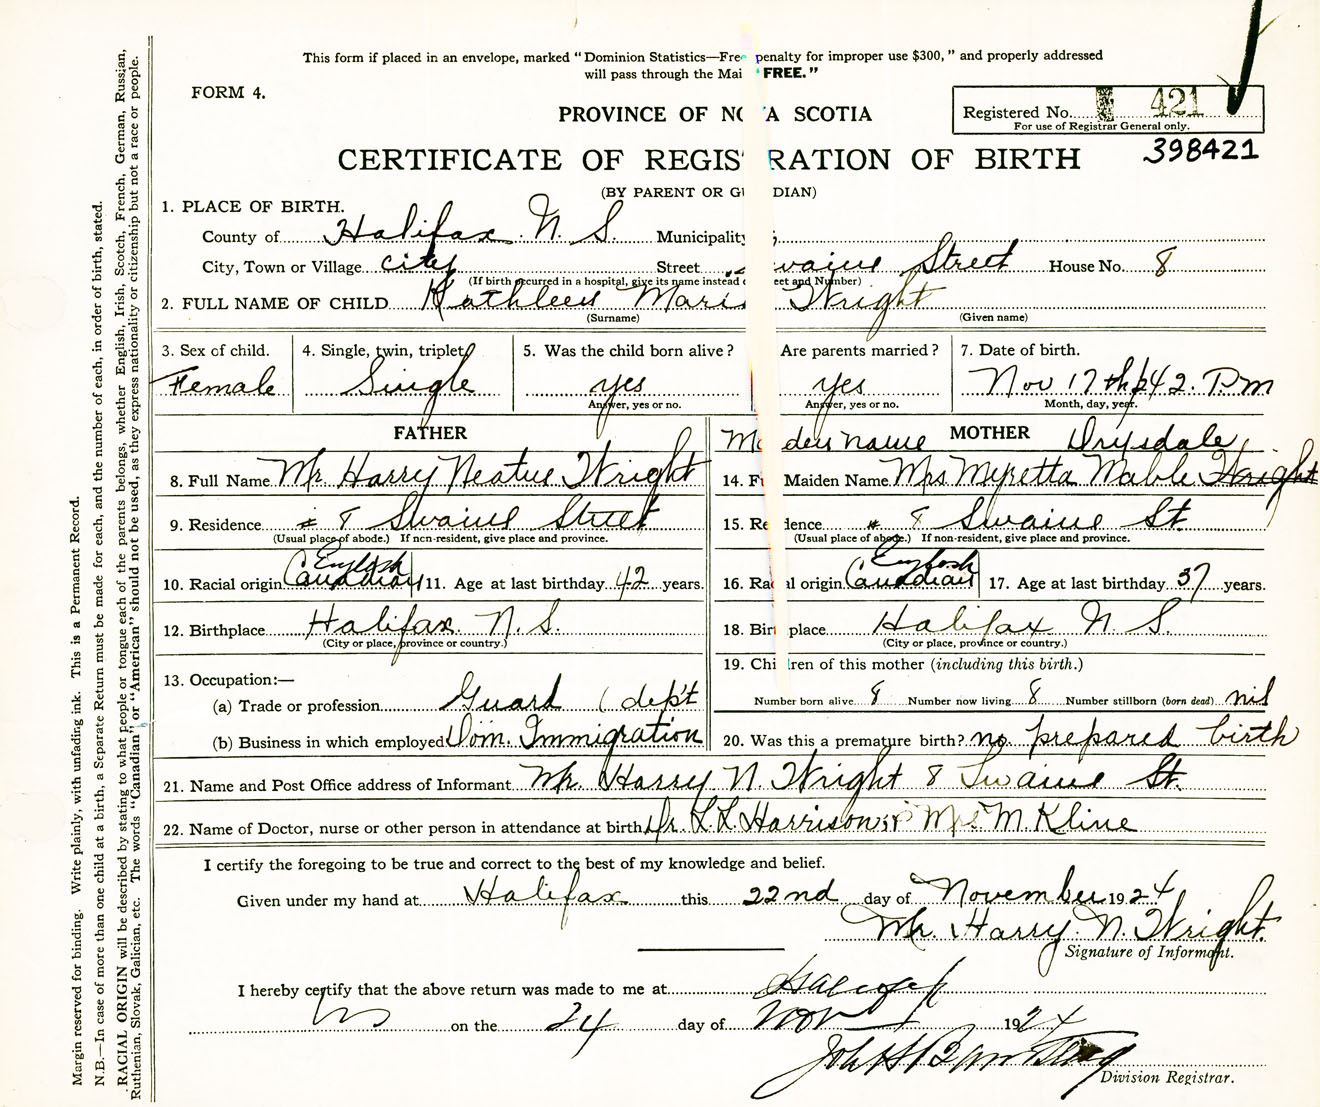 This form if placed in an envelope, marked "Dominion Statistics—Free penalty for improper use $300," and properly addressed
will pass through the Mai "FREE."
FORM 4.
Registered No. 421
For use of Registrar General only.
PROVINCE OF NOVA SCOTIA
398421
CERTIFICATE OF REGISTRATION OF BIRTH
(BY PARENT OR GUARDIAN)
1. PLACE OF BIRTH.
County of Halifax N. S. Municipality
City, Town or Village city Street Swaine Street House No. 8
(If birth occurred in a hospital, give its name instead of Street and Number)
2. FULL NAME OF CHILD Kathleen Marie Wright
(Surname) (Given name)
3. Sex of child. 4. Single, twin, triplet 5. Was the child born alive? Are parents married? 7. Date of birth.
Female Single yes yes Nov 17th P.m
Answer, yes or no. Answer, yes or no. Month, day, year.
FATHER Maiden name MOTHER Drysdale
8. Full Name Mr. Harry Neatus Wright 14. Full Maiden Name Mrs Myretta Mable Wright
9. Residence # 8 Swaine Street 15. Residence # 8 Swaine St.
(Usual place of abode.) If non-resident, give place and province. (Usual place of abode.) If non-resident, give place and province.
English English
10. Racial origin Canadian 11. Age at last birthday 42 years. 16. Racial origin Canadian 17. Age at last birthday 37 years.
12. Birthplace Halifax. N. S. 18. Birthplace Halifax N. S.
(City or place, province or country.) (City or place, province or country.)
13. Occupation:— 19. Children of this mother (including this birth.)
(a) Trade or profession Guard (dep't Number born alive 8 Number now living 8 Number stillborn (born dead) nil
(b) Business in which employed Dom. Immigration 20. Was this a premature birth? no prepared birth
21. Name and Post Office address of Informant Mr. Harry N. Wright 8 Swaine St.
22. Name of Doctor, nurse or other person in attendance at birth Dr. L. L. Harrison Mrs. M. Kline
I certify the foregoing to be true and correct to the best of my knowledge and belief.
Given under my hand at Halifax this 22nd day of November 1924
Mr. Harry. N. Wright.
Signature of Informant.
I hereby certify that the above return was made to me at Halifax
NS on the 24 day of Nov 1924
Division Registrar.
Margin reserved for binding. Write plainly, with unfading ink. This is a Permanent Record.
N.B.—In case of more than one child at a birth, a Separate Return must be made for each, and the number of each, in order of birth, stated.
RACIAL ORIGIN will be described by stating to what people or tongue each of the parents belongs, whether English, Irish, Scotch, French, German, Russian,
Ruthenian, Slovak, Galician, etc. The words "Canadian" or "American" should not be used, as they express nationality or citizenship but not a race or people.